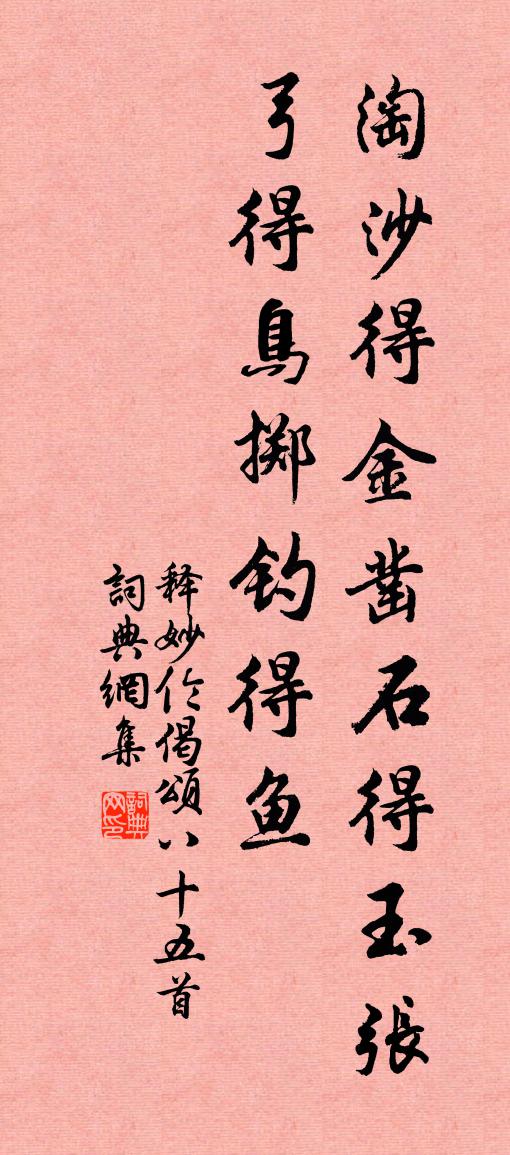 淘沙得金凿石得玉張
弓得鳥掷钓得魚
释妙伦偈頌八十五首
詞典網集
詞典网印